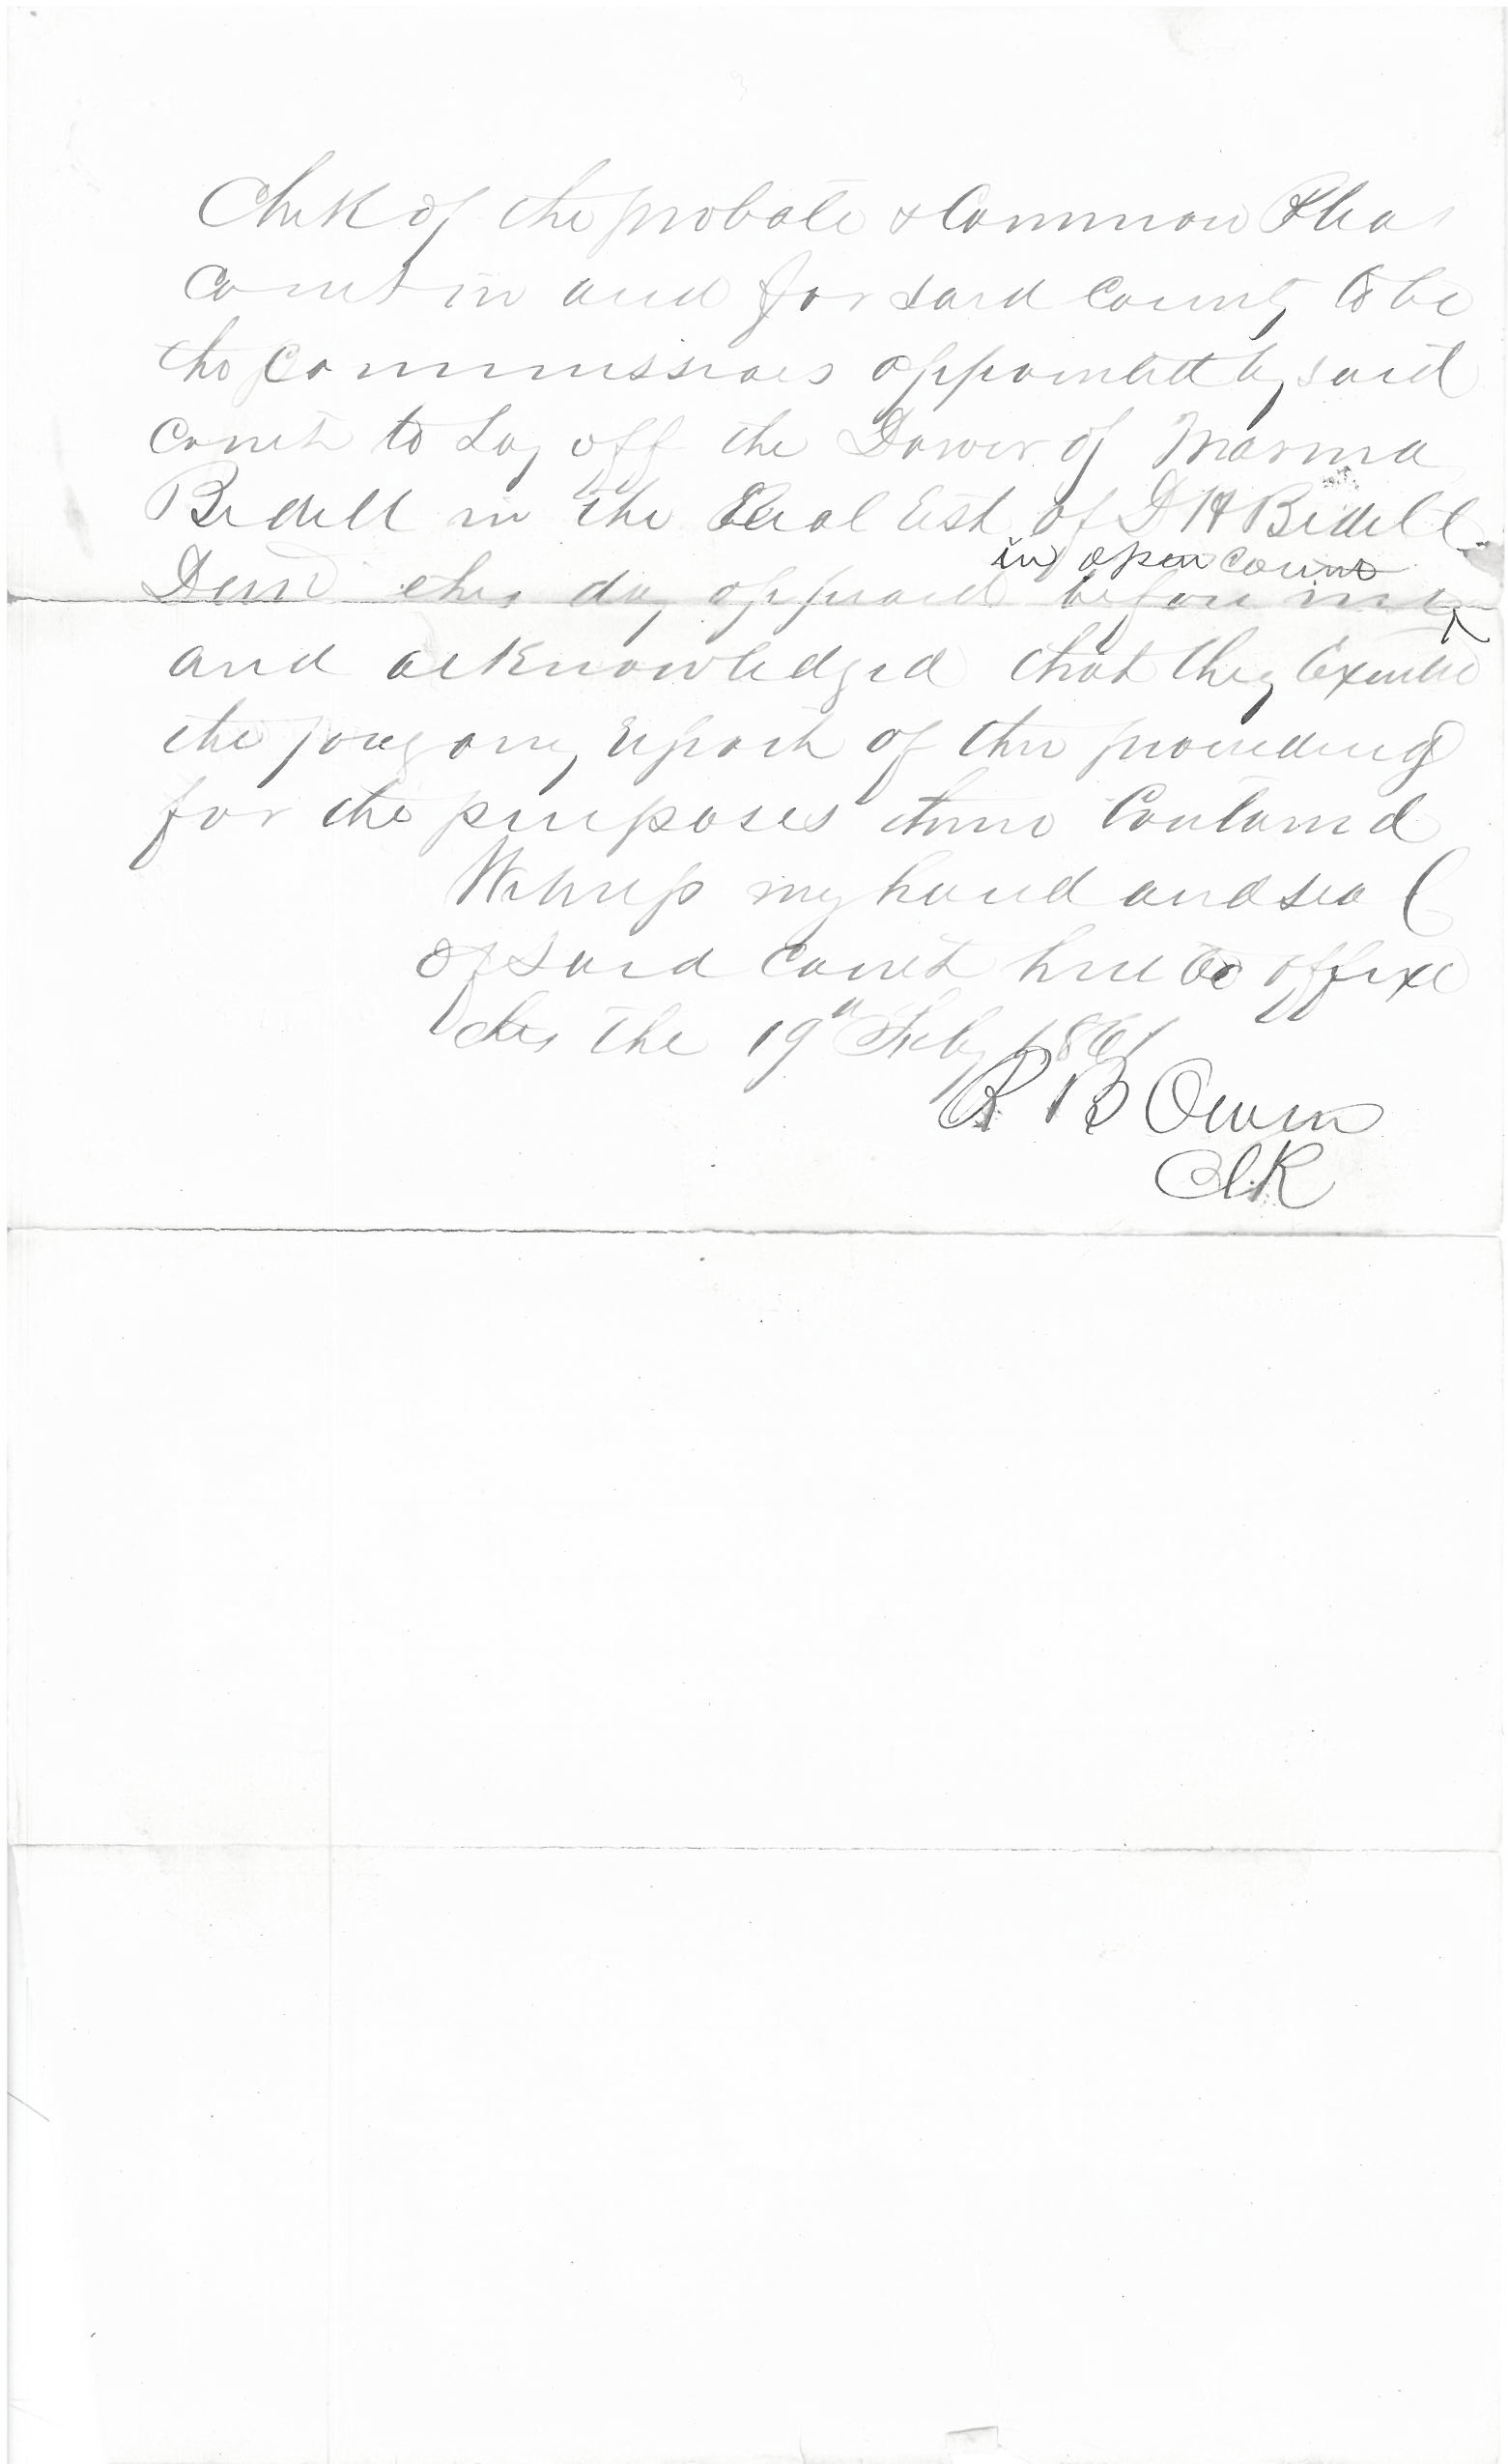 Clerk of the probate & Common Pleas
Court in and for said County to be
the Commissioners appointed by said
Court to Lay off the Dower of
Bedell in the Real Est of D H Bedell
in open Court
Decd this day appeared before me ^
and acknowledged that they Executed
the foregoing report of their proceeding
for the purposes therein Contained
Witness my hand and seal
of said Court hereto affixed
this the 19th Feby 1861
R B Owen
Clk